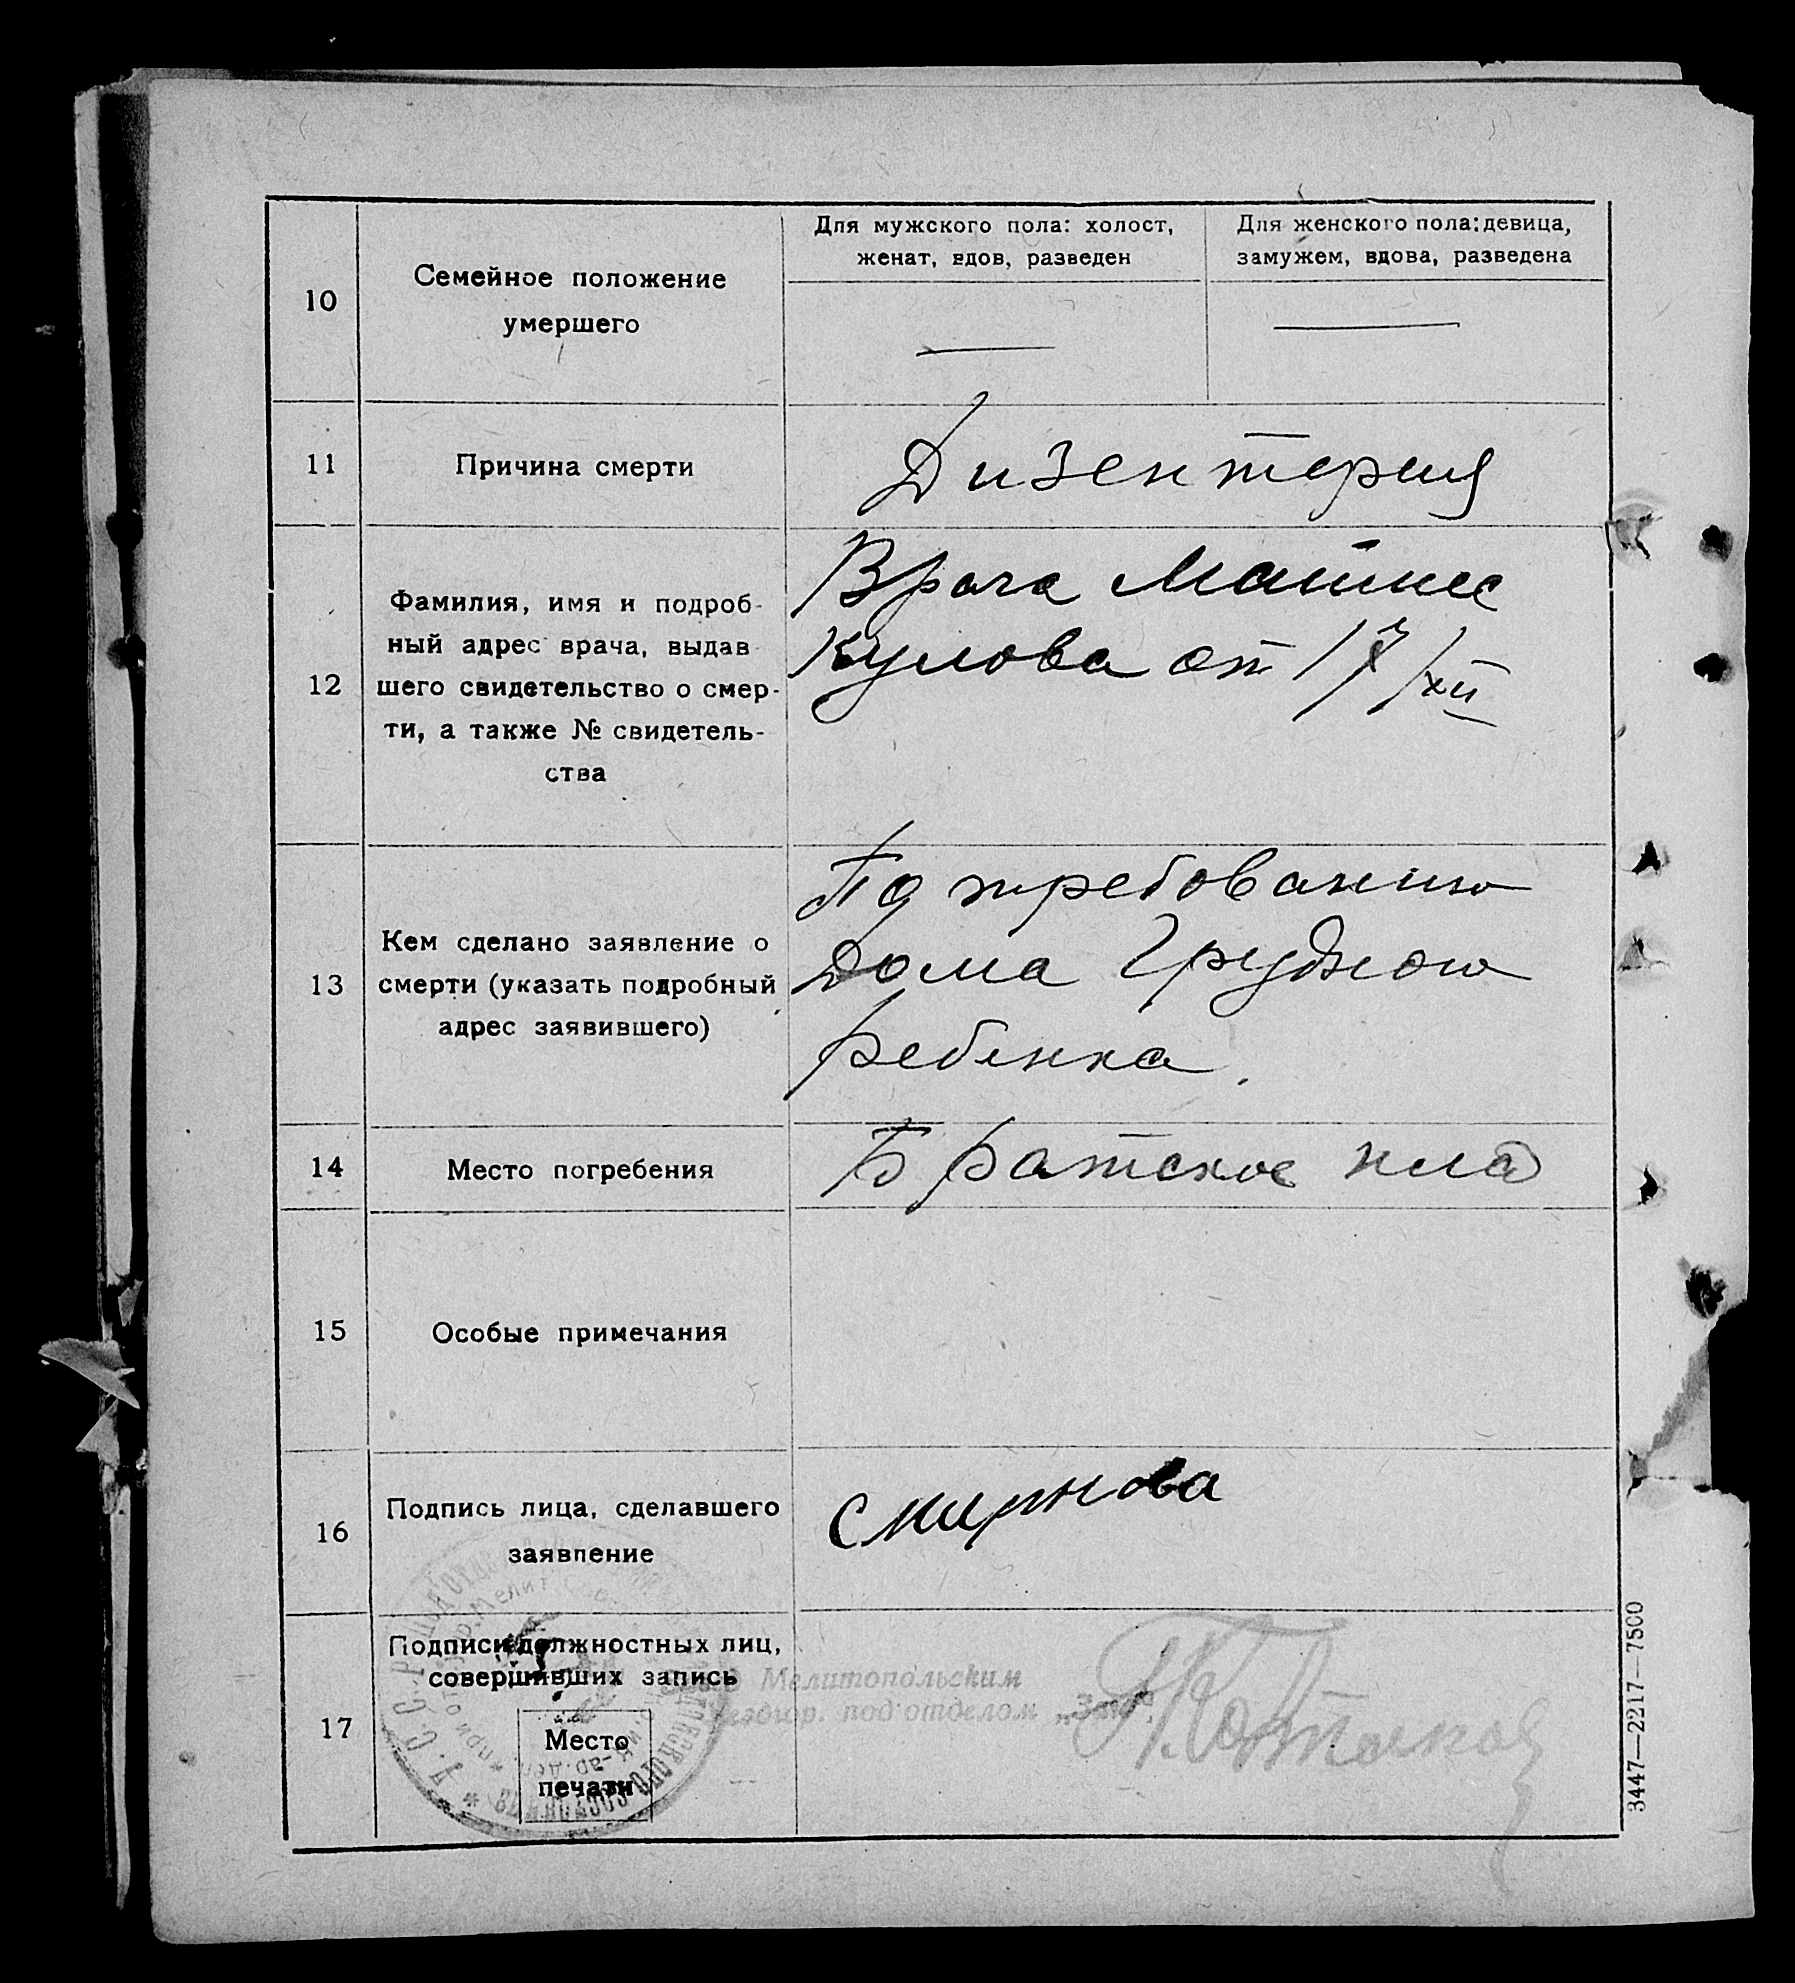 10
Семейное положение
умершего
Для мужского пола: холост,
женат, вдов, разведен
Для женского пола: девица,
замужем, вдова, разведена
11
Причина смерти
Дизентерия
12
Фамилия, имя и подроб-
ный адрес врача, выдав
шего свидетельство о смер-
ти, а также № свидетель-
ства
Врача
от 17/XII
13
Кем сделано заявление о
смерти (указать подробный
адрес заявившего)
По требованию
Дома Грудного
Ребенка.
14
Место погребения
Братское клад
15
Особые примечания
16
Подпись лица, сделавшего
заявление
Смирнова
17
Подписи должностных лиц,
совершивших запись
Место
печати
Мелитопольским
гор. под'отделом „Загс"
3447—2217—7500